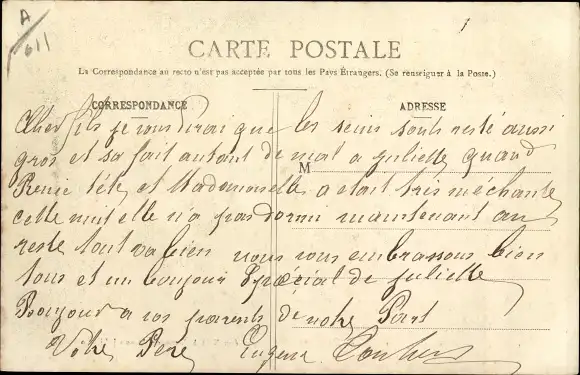 A
611
1
CARTE POSTALE
La Correspondance au recto n'est pas acceptée par tous les Pays Étrangers. (Se renseigner à la Poste.)
CORRESPONDANCE
ADRESSE
M
Cher fils je vous dirai que les seins sonts resté aussi
gros et sa fait autant de mal a juliette quand
tête et Mademoiselle a etait très méchante
cette nuit elle n'a pas dormi maintenant au
reste tout va bien nous vous embrassons bien
tous et un bonjour Spécial de juliette
Bonjour a vos parents de notre Part
Votre Père Eugène